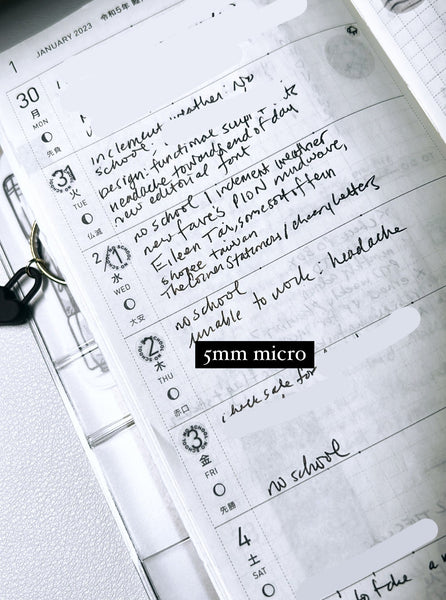 1 JANUARY 2023 令和5年
30
月
MON
先負
inclement weather: No
school!
31
火
TUE
仏滅
Design: functional script etc
headache towards end of day
new editorial font
2/1
水
WED
大安
no school / inclement weather
new fave's PLON midwave,
Eileen Tai, some sort of fern
shopee taiwan
The Corner Stationers / cheery letters
2
木
THU
赤口
no school
unable to work: headache
5mm micro
3
金
FRI
先勝
check sale for
no school
4
土
SAT